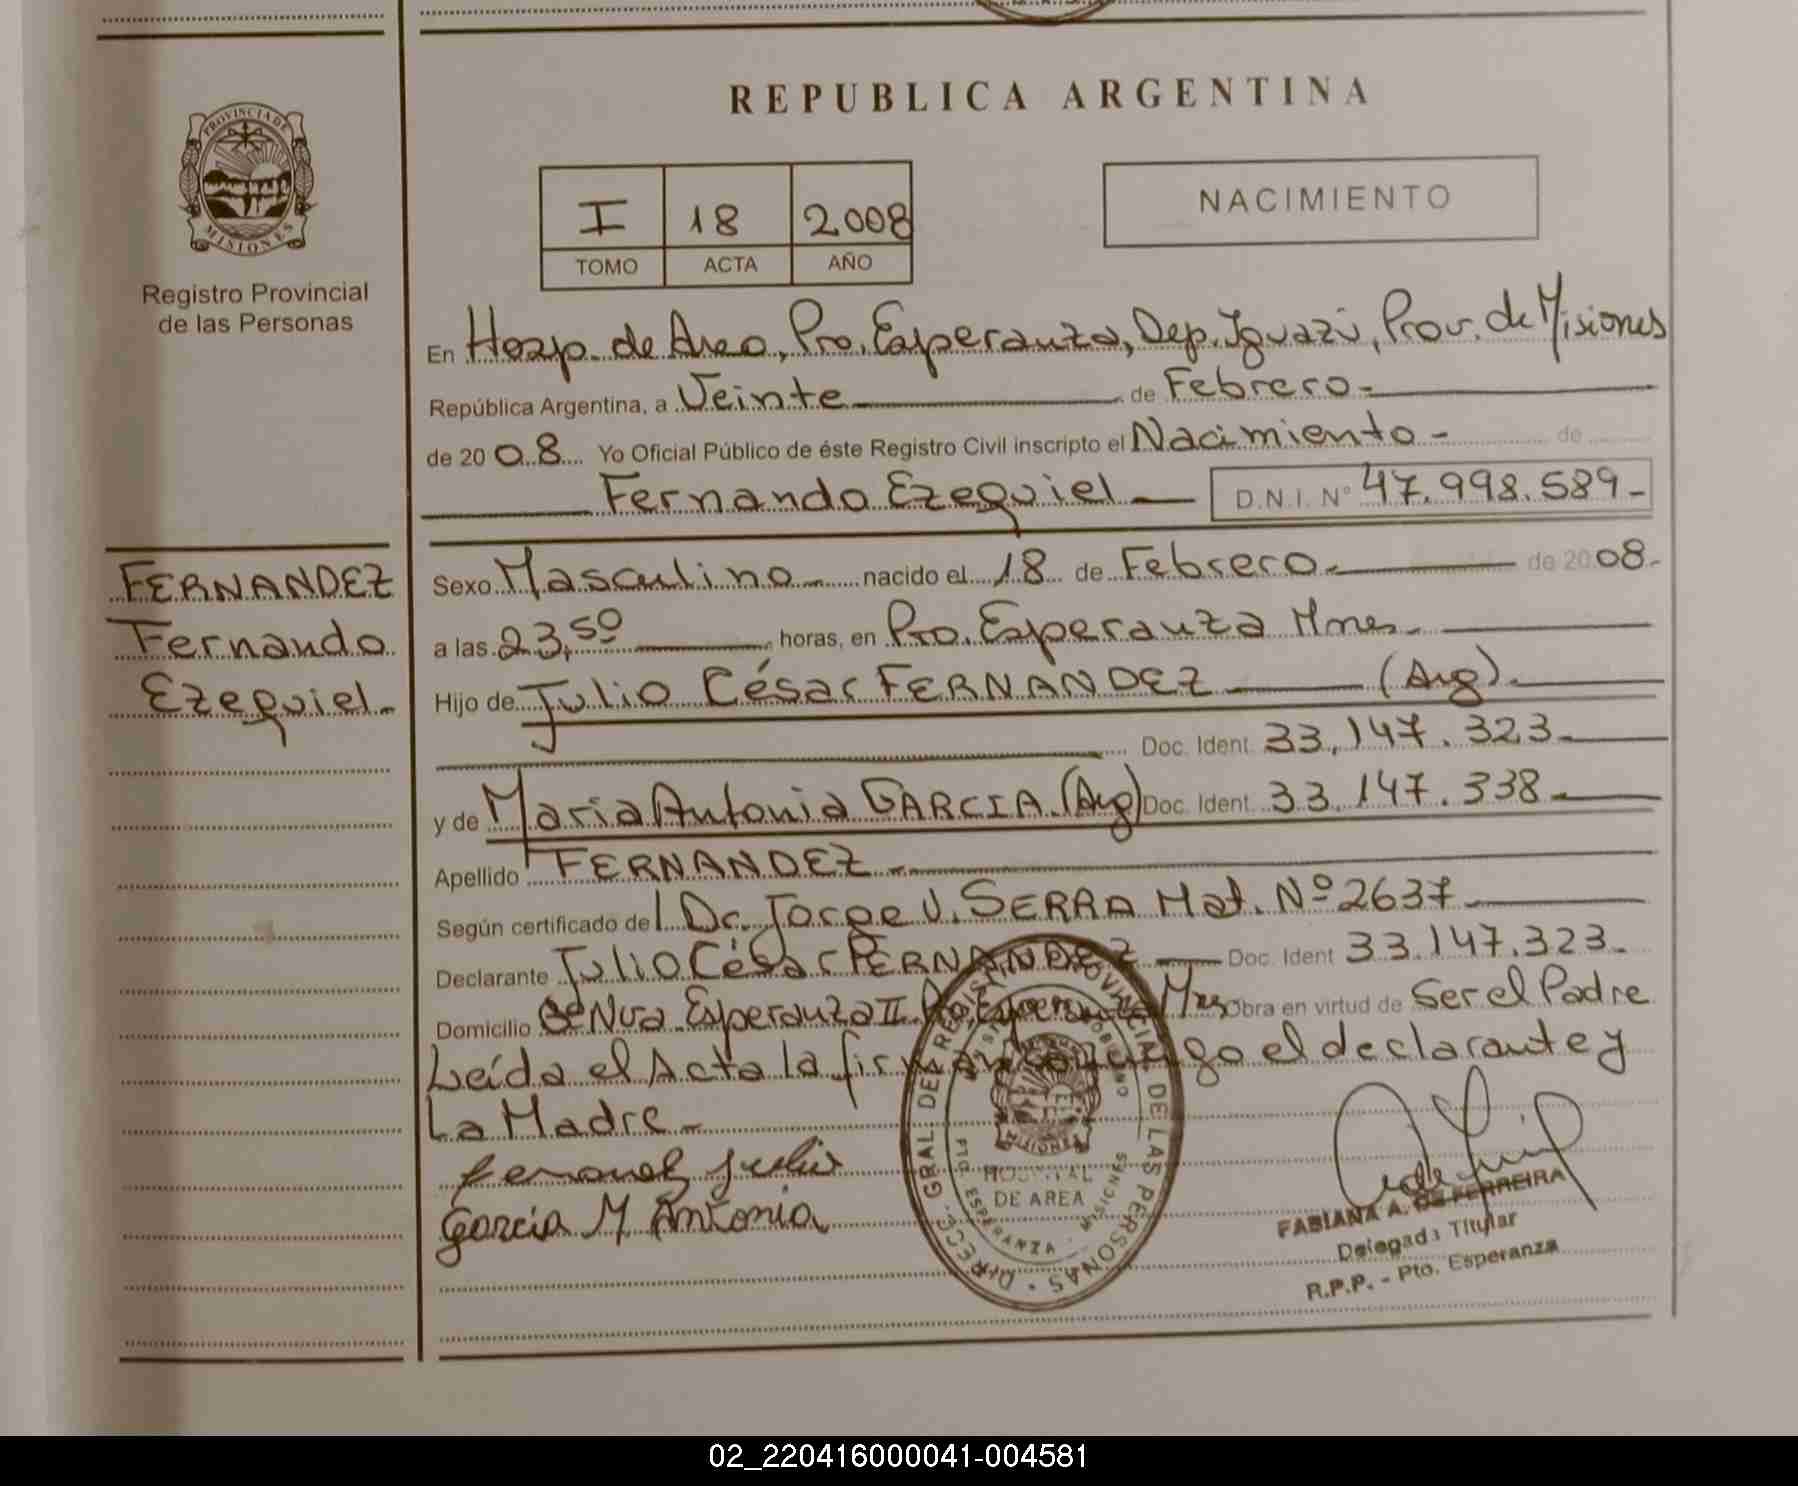 REPUBLICA ARGENTINA
PROVINCIA DE MISIONES
Registro Provincial
de las Personas
I 18 2008
TOMO ACTA AÑO
NACIMIENTO
En Hosp. de Area, Pto. Esperanza, Dep. Iguazú, Prov. de Misiones
República Argentina, a Veinte de Febrero
de 2008 Yo Oficial Público de éste Registro Civil inscripto el Nacimiento - de
Fernando Ezequiel D.N.I. Nº 47.998.589-
FERNANDEZ
Fernando
Ezequiel-
Sexo Masculino nacido el 18 de Febrero de 2008-
a las 23,50 horas, en Pto. Esperanza Mnes-
Hijo de Julio César FERNANDEZ (Arg).
Doc. Ident. 33.147.323-
y de Maria Antonia GARCIA. (Arg) Doc. Ident. 33.147.338-
Apellido FERNANDEZ-
Según certificado del Dr. Jorge V. SERRA Mat. Nº 2637-
Declarante Julio César FERNANDEZ Doc. Ident 33.147.323-
Domicilio Bº Nva. Esperanza II Pto. Esperanza Mnes Obra en virtud de Ser el Padre
Leída el Acta la firman conmigo el declarante y
La Madre-
Fernandez Julio
Garcia M Antonia
DIRECC. GRAL. DEL REGISTRO PROVINCIAL DE LAS PERSONAS
HOSPITAL
DE AREA
PTO. ESPERANZA - MISIONES
FABIANA A. DE FERREIRA
Delegada Titular
R.P.P. - Pto. Esperanza
02_220416000041-004581